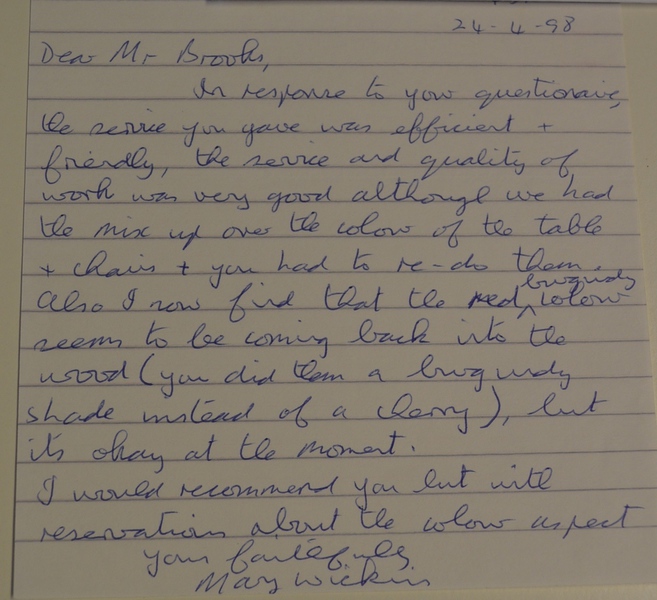 24-4-98
Dear Mr Brooks,
In response to your questionaire,
the service you gave was efficient +
friendly, the service and quality of
work was very good although we had
the mix up over the colour of the table
+ chairs + you had to re-do them.
burgundy
Also I now find that the red colour
seems to be coming back into the
wood (you did them a burgundy
shade instead of a cherry), but
its okay at the moment.
I would recommend you but with
reservations about the colour aspect
yours faithfully
Mary Wickins